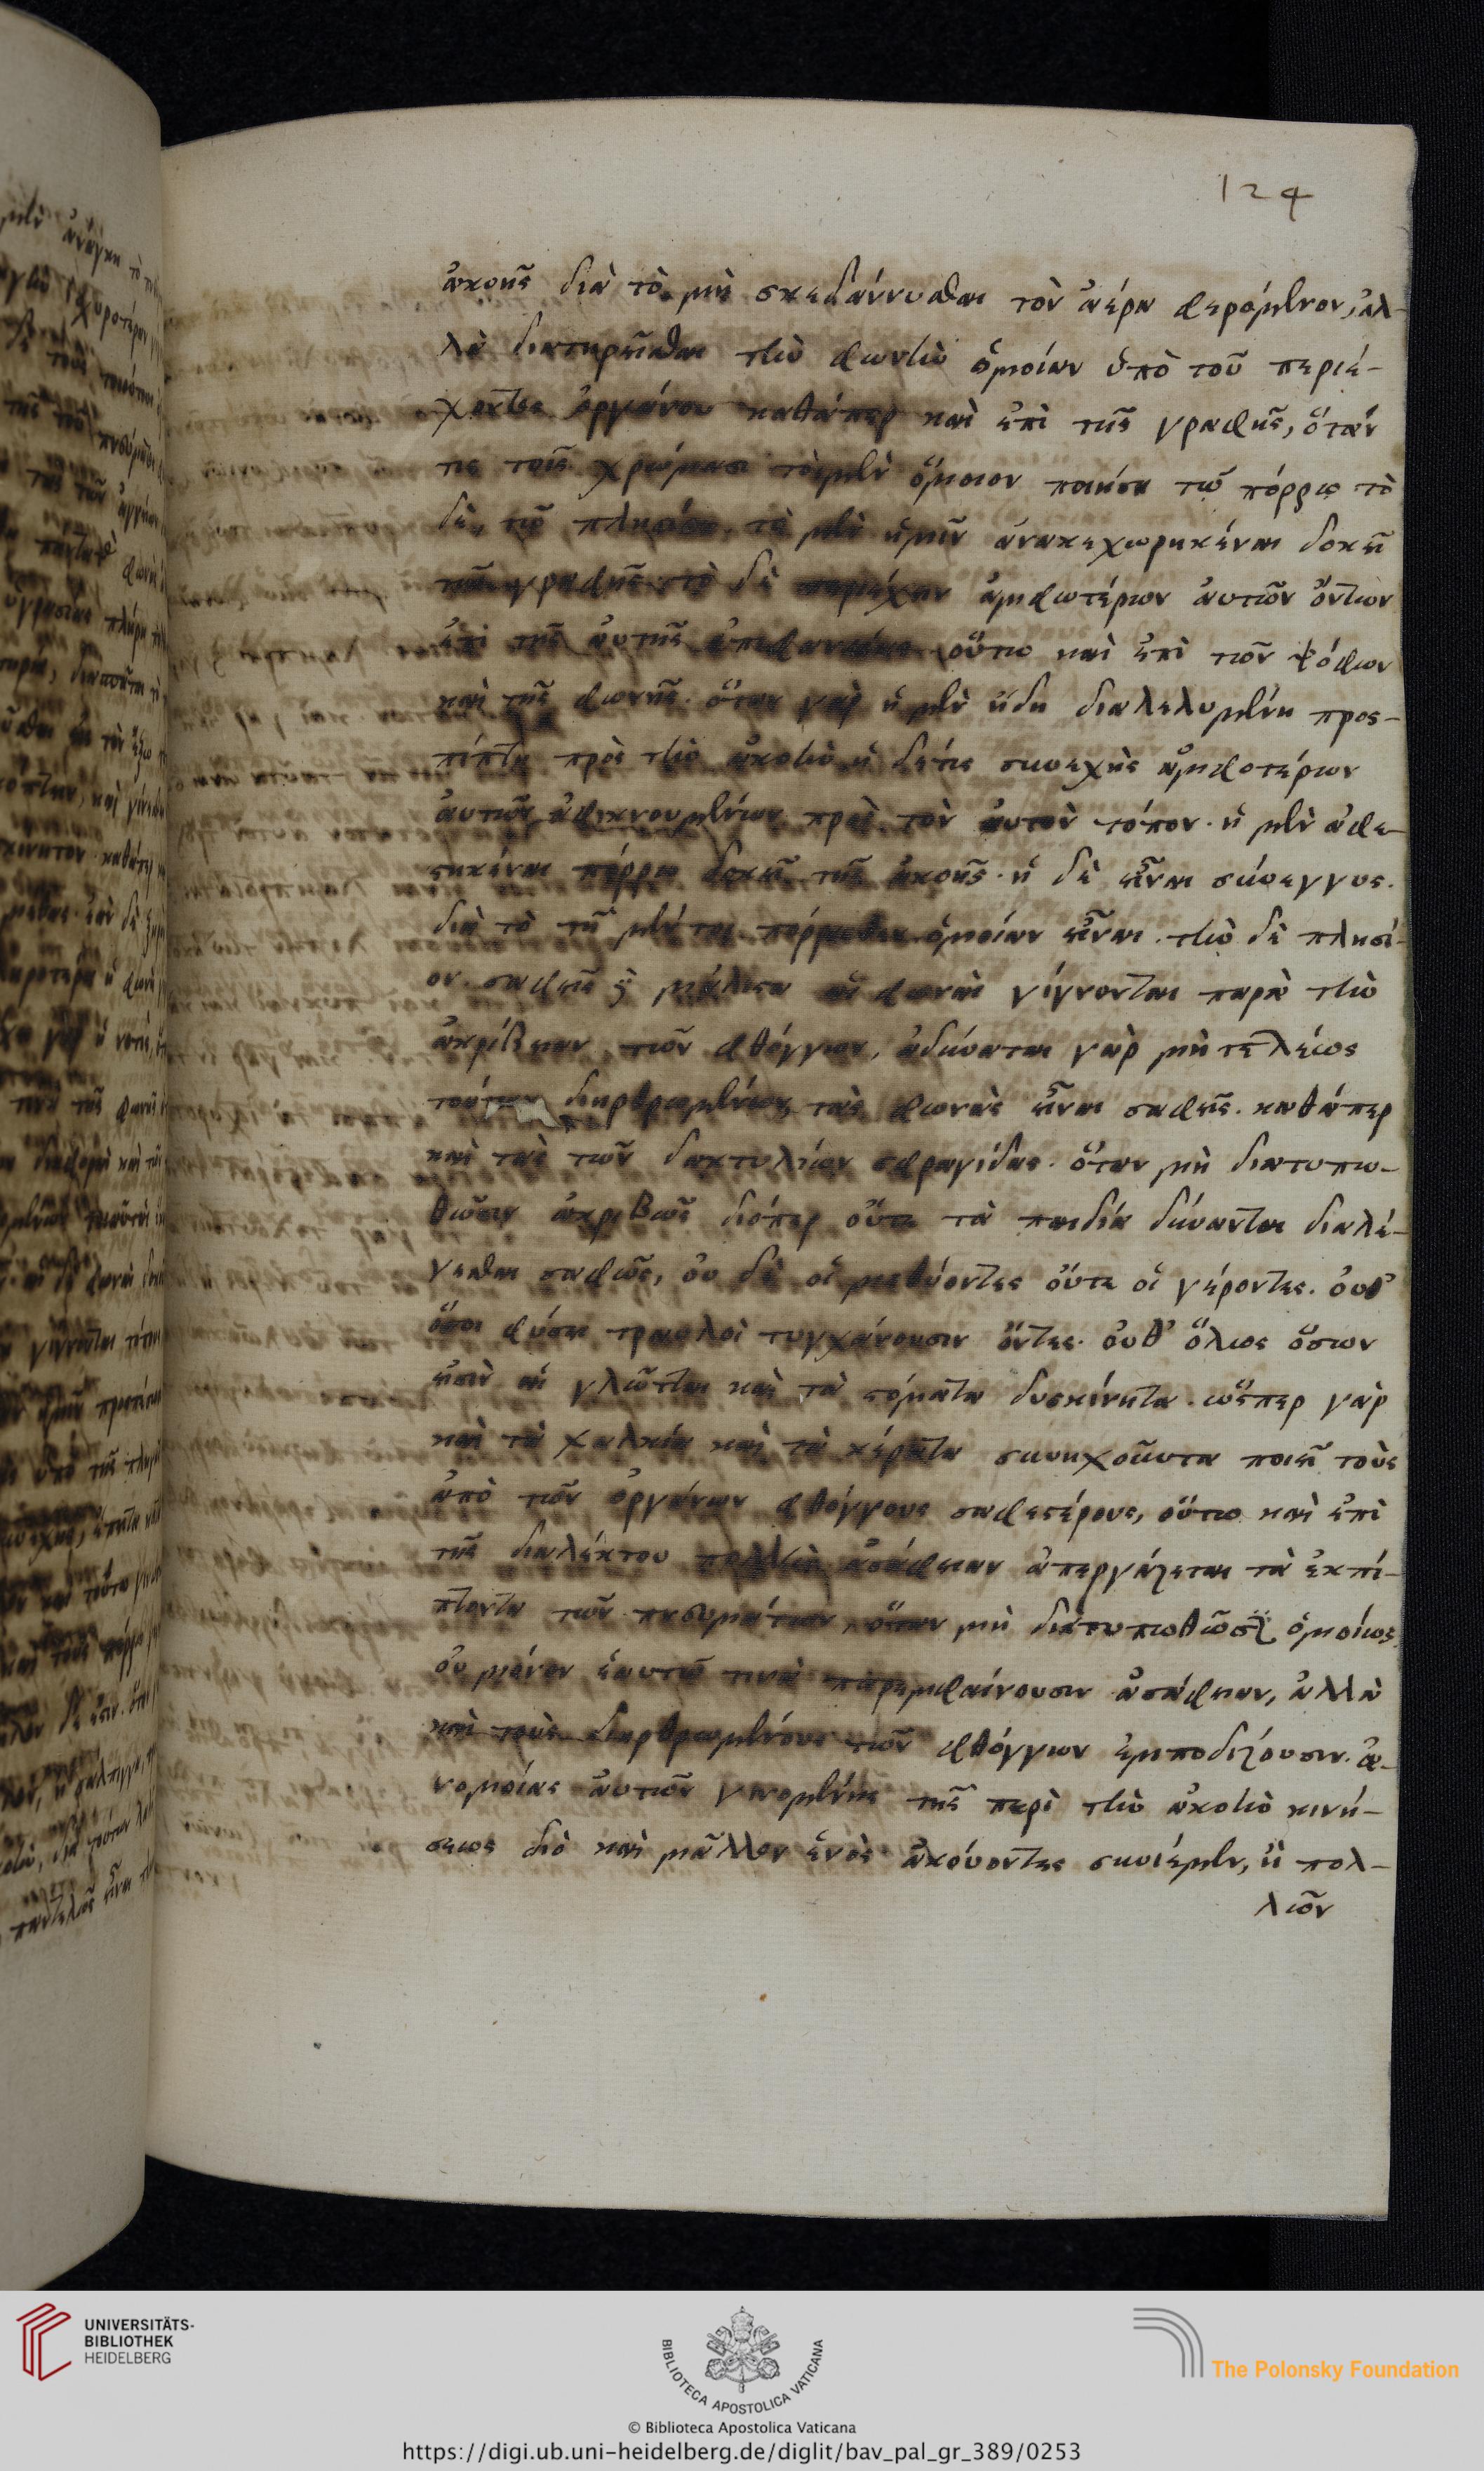 124
ἀκοῆς διὰ τὸ μὴ σκεδάννυσθαι τὸν ἀέρα φερόμενον, ἀλ-
λὰ διατηρεῖσθαι τὴν φωνὴν ὁμοίαν ὑπὸ τοῦ περιέ-
χοντος ὀργάνου καθάπερ καὶ ἐπὶ τῆς γραφῆς, ὅταν
τις τοῖς χρώμασι τὸ μὲν ὅμοιον ποιήσῃ τῷ πόρρω τὸ
δὲ, τῷ πλησίον, τὸ μὲν ἡμῖν ἀνακεχωρηκέναι δοκεῖ
τῆς γραφῆς τὸ δὲ ἀμφωτέρων ἀυτῶν ὄντων
ἐπὶ τῆς ἀυτῆς ἐπιφανείας οὕτω καὶ ἐπὶ τῶν ψόφων
καὶ τῆς φωνῆς. ὅταν γὰρ ἡ μὲν ἤδη διαλελυμένη προς-
πίπτῃ πρὸς τὴν ἀκοὴν ἡ δέ τις συνεχὴς ἀμφοτέρων
ἀυτῶν ἀφικνουμένων πρὸς τὸν ἀυτὸν τόπον. ἡ μὲν ἀφε-
στηκέναι πόρρω δοκεῖ τῆς ἀκοῆς. ἡ δὲ εἶναι σύνεγγυς.
διὰ τὸ τῇ μέν τοι πόρρωθεν ὁμοίαν εἶναι. τὴν δὲ πλησί-
ον. σαφεῖς δὲ μάλιστα αἱ φωναὶ γίγνονται παρὰ τὴν
ἀκρίβειαν τῶν φθόγγων, ἀδύναται γὰρ μὴ τελέως
τούτων διηρθρωμένων τὰς φωνὰς εἶναι σαφεῖς. καθάπερ
καὶ τὰς τῶν δακτυλίων σφραγίδας. ὅταν μὴ διατυπω-
θῶσιν ἀκριβῶς διόπερ οὔτε τὰ παιδία δύνανται διαλέ-
γεσθαι σαφῶς, ου δὲ οἱ μεθύοντες οὔτε οἱ γέροντες. ὀυθ᾽
ὅσοι φύσει τραυλοὶ τυγχάνουσιν ὄντες. ὀυθ᾽ ὅλως ὅσων
εἰσὶν αἱ γλῶτται καὶ τὰ στόματα δυσκίνητα. ὥσπερ γὰρ
καὶ τὰ χαλκία καὶ τὰ κέρατα συνηχοῦντα ποιεῖ τοὺς
ἀπὸ τῶν ὀργάνων φθόγγους σαφεστέρους, οὕτω καὶ ἐπὶ
τῆς διαλέκτου πολλὴν ἀσάφειαν ἀπεργάζεται τὰ ἐκπί-
πτοντα τῶν πνευμάτων, ὅταν μὴ διατυπωθῶσιν ὁμοίως.
ου μόνον ἑαυτῶ τινὰ παρεμφαίνουσιν ἀσάφειαν, ἀλλὰ
καὶ τοὺς διηρθρωμένους τῶν φθόγγων ἐμποδίζουσιν. ἀ-
νομοίας ἀυτῶν γινομένης τῆς περὶ τὴν ἀκοὴν κινή-
σεως διὸ καὶ μᾶλλον ἑνὸς ἀκούοντες συνίεμεν, ἢ πολ-
λῶν
UNIVERSITÄTS-
BIBLIOTHEK
HEIDELBERG
BIBLIOTECA APOSTOLICA VATICANA
The Polonsky Foundation
© Biblioteca Apostolica Vaticana
https://digi.ub.uni-heidelberg.de/diglit/bav_pal_gr_389/0253